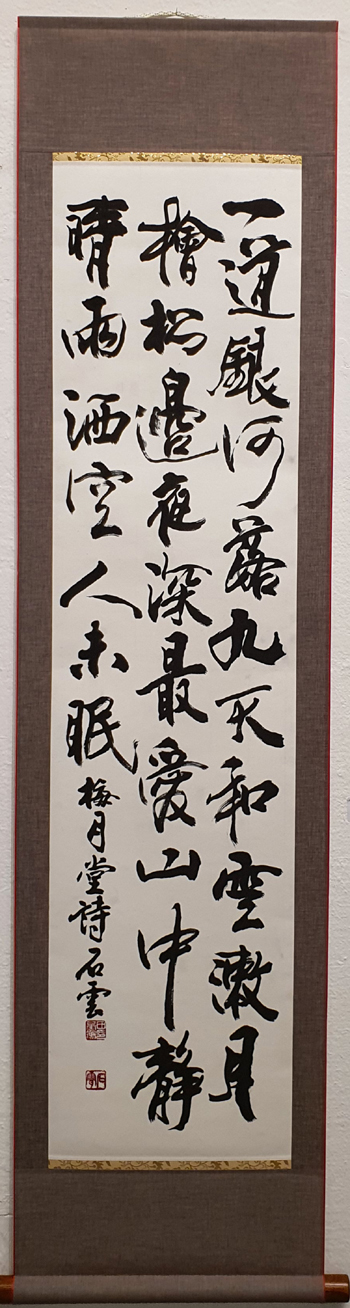 一道銀河落九天和雲漱月
檜松邊夜深最愛山中靜
晴雨洒空人未眠 梅月堂詩石雲